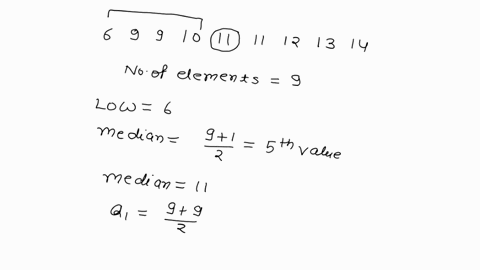 6 9 9 10 11 11 12 13 14
No. of elements = 9
Low = 6
median = 9+1/2 = 5th value
median = 11
Q1 = 9+9/2